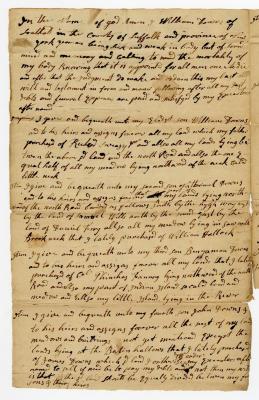 In the Name of god Amen I William Downs of
Southold in the County of Suffolk and province of
york yeoman being sick and weak in body but of sound
mind and memory and calling to mind the mortality of
my body knowing that it is appointed for all men once to die
and after that the judgment do make and ordain this my last
will and testament in form and manner following after all my just
debts and funeral Expences are paid and satisfyd by my Executors
after named
I give and bequeath unto my Eldest son William Downs
and to his heirs and assigns forever all my land which my father
purchased of Richard and also all my lands lying be
tween the above land and the north Road and also the one
half of all my meadow lying northward of the
little neck
Item I give and bequeath unto my second son Downs
and to his heirs and assigns forever all my land on the north
the north Road bounded as follows South by the high way
by the land of Samuel Wells north by the sound East by the
land of Daniel Tery also all my meadow lying in saw mill
Brook neck that I lately purchased of William fulford
Item I give and bequeath unto my third son Benjamin Downs
and to his heirs and assigns forever all the land that I lately
purchased of Col Phinehas Fanning lying northward of the north
Road and also my part of Indian Island so calld land and
meadow and also my little Island lying in the River
Item I give and bequeath unto my fourth son John Downs &
to his heirs and assigns forever all the rest of my land
meadow and buildings not yet mentiond Except the
lands lying at the Baiting hallows that I lately purchased
of James Downs which land I order my Executors after
named to sell if need be to pay my debts and if not then my will
is that the land shall be Equally divided between my four
sons & their heirs